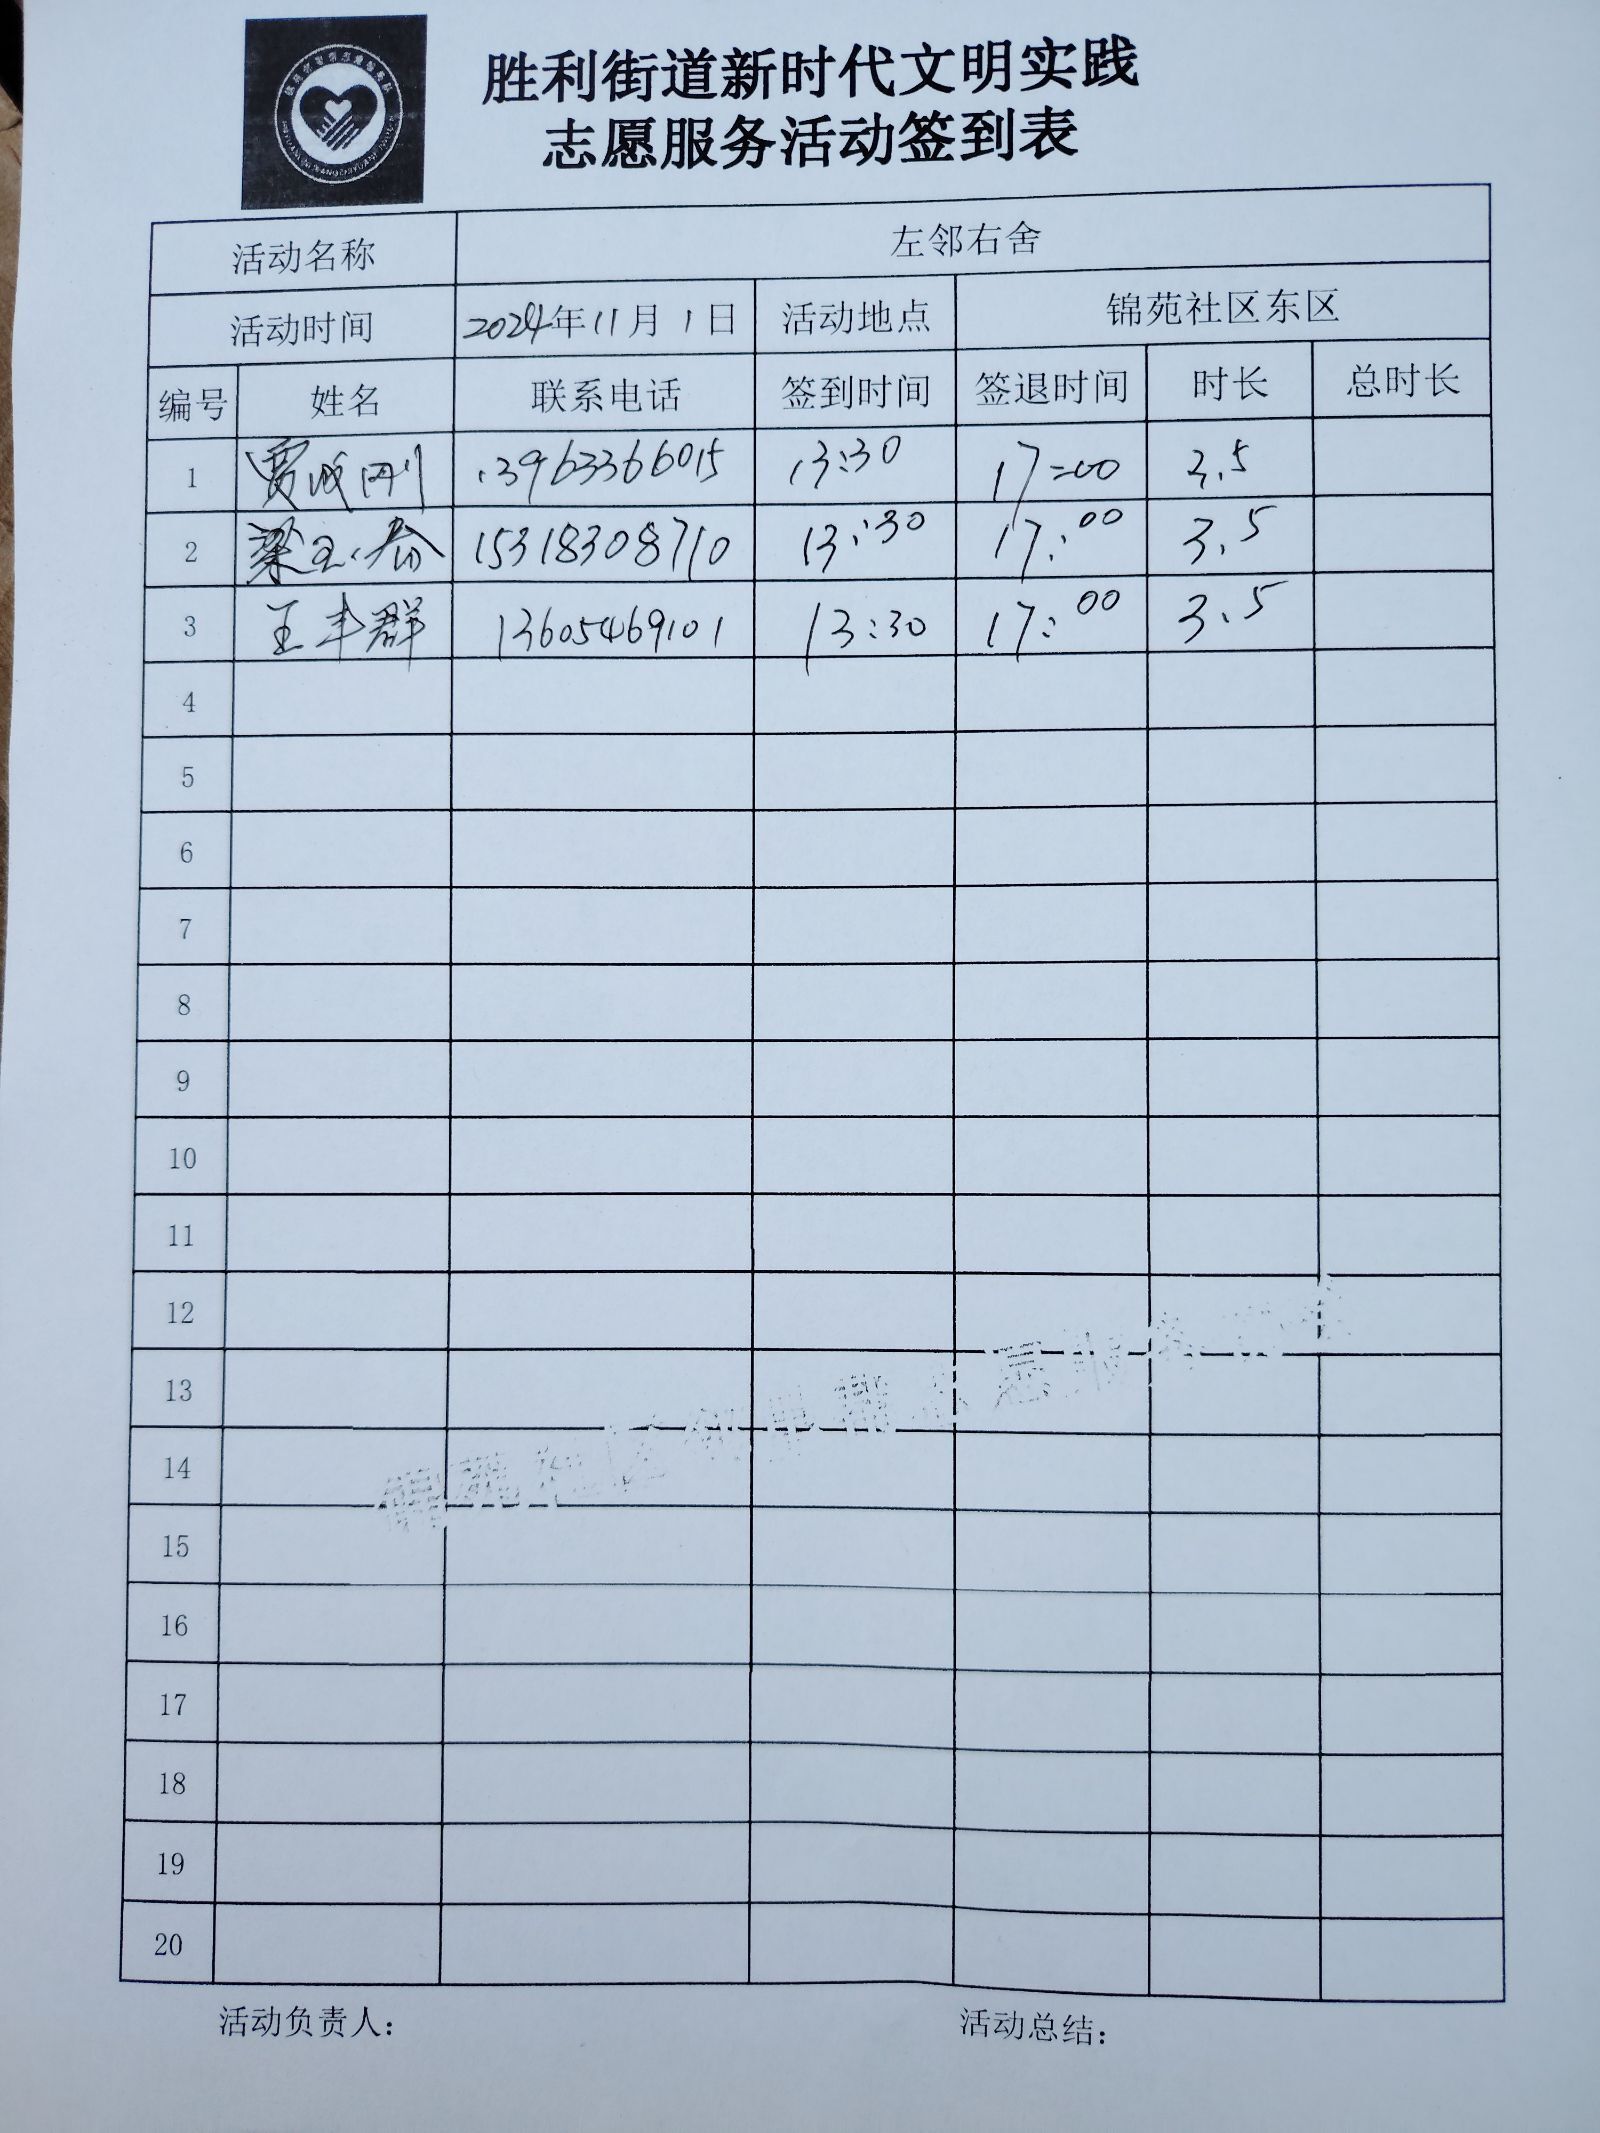 胜利街道新时代文明实践
志愿服务活动签到表
活动名称 左邻右舍
活动时间 2024年11月1日 活动地点 锦苑社区东区
编号 姓名 联系电话 签到时间 签退时间 时长 总时长
1 贾成刚 13963366015 13:30 17:00 3.5
2 梁玉春 15318308710 13:30 17:00 3.5
3 王丰群 13605469101 13:30 17:00 3.5
4
5
6
7
8
9
10
11
12
13
14
15
16
17
18
19
20
活动负责人： 活动总结：